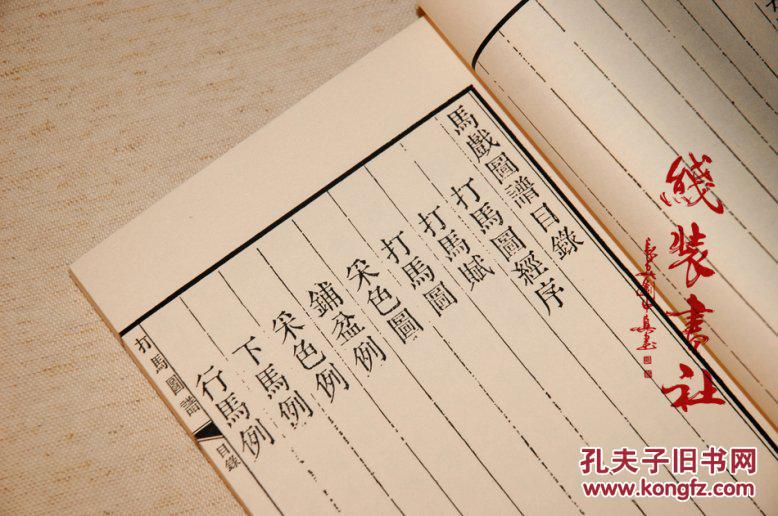 馬戲圖譜目錄
打馬圖經序
打馬賦
打馬圖
采色圖
鋪盆例
采色例
下馬例
行馬例
打馬圖譜
目錄
綫装書社
孔夫子旧书网
www.kongfz.com